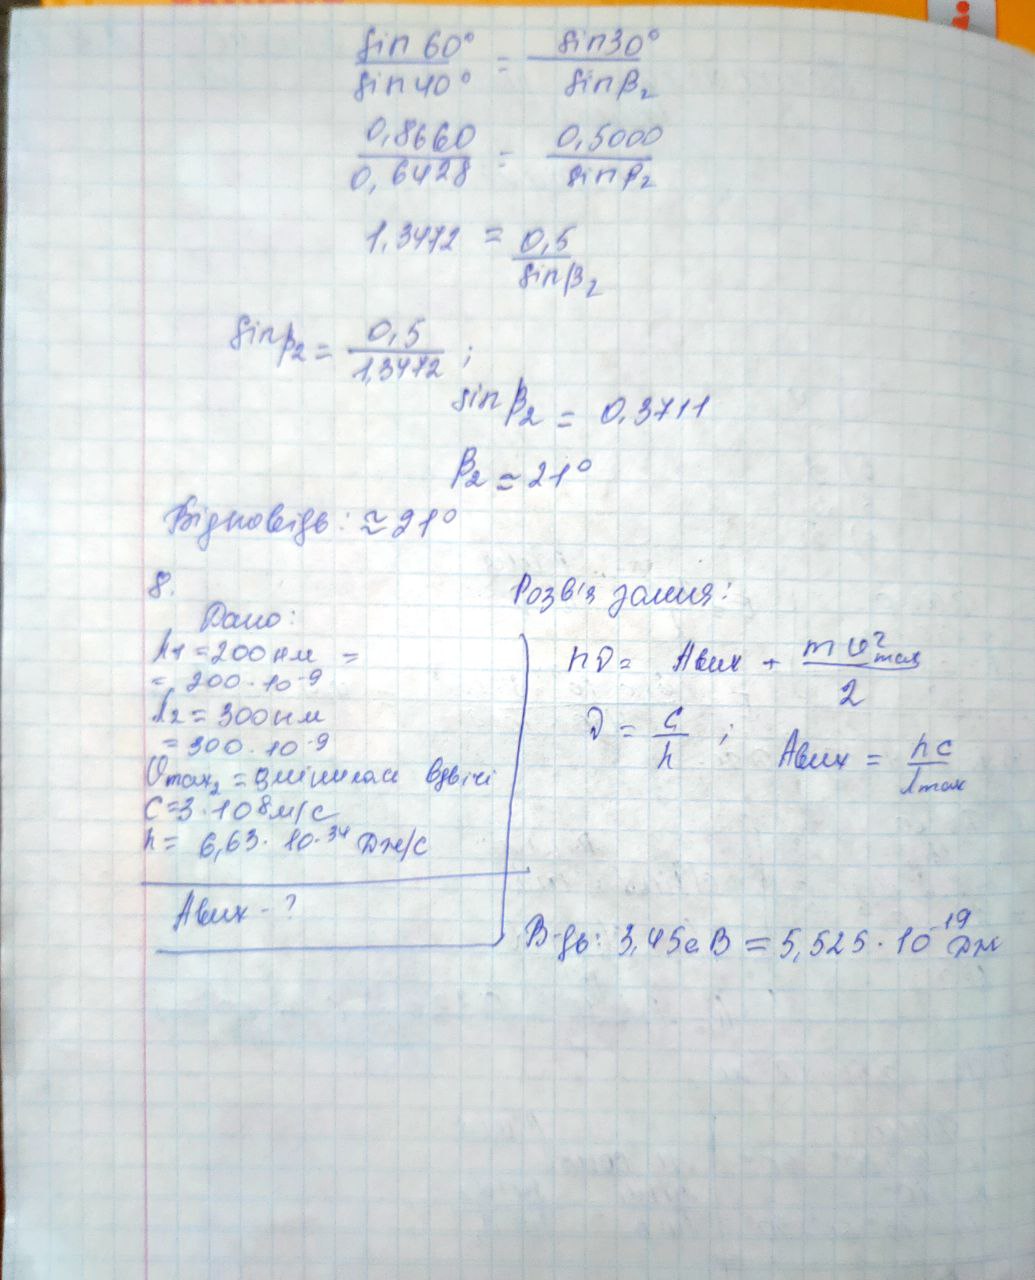 sin 60° / sin 40° = sin 30° / sin β₂
0,8660 / 0,6428 = 0,5000 / sin β₂
1,3472 = 0,5 / sin β₂
sin β₂ = 0,5 / 1,3472 ;
sin β₂ = 0,3711
β₂ ≈ 21°
Відповідь: ≈ 21°
8.
Дано:
λ1 = 200 нм =
= 200 · 10⁻⁹
λ2 = 300 нм
= 300 · 10⁻⁹
υmax₂ = змінилась вдвічі
C = 3 · 10⁸ м/с
h = 6,63 · 10⁻³⁴ Дж/с
Авих - ?
Розв'язання:
hν = Авих + mυ²max / 2
ν = c / λ ; Авих = hc / λmax
В-дь: 3,45 еВ = 5,525 · 10⁻¹⁹ Дж